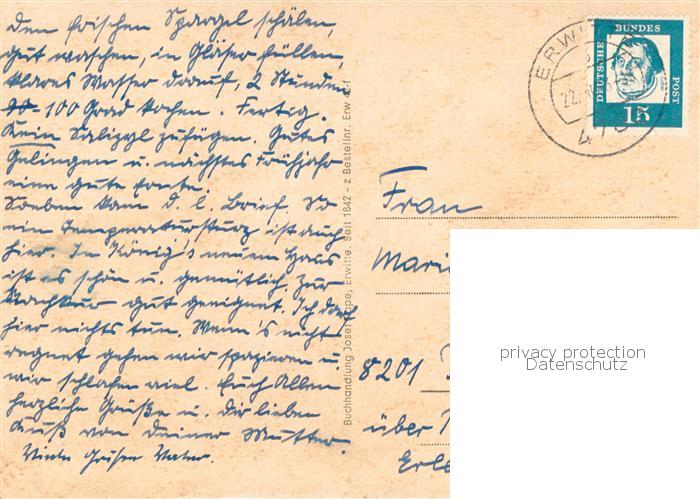 Den frischen Spargel schälen,
gut waschen, in Gläser füllen,
klares Wasser darauf, 2 Stunden
100 Grad kochen. Fertig.
Kein Salizyl zufügen. Gutes
Gelingen u. nächstes Frühjahr
eine gute Ernte.
Soeben kam D. l. Brief. So
ein Temperatursturz ist auch
hier. In König's neuem Haus
ist es schön u. gemütlich. Zur
Nachkur gut geeignet. Ich darf
hier nichts tun. Wenn's nicht
regnet gehen wir spazieren u.
wir schlafen viel. Euch Allen
herzliche Grüße u. Dir lieben
Kuß von Deiner Mutter.
Viele Grüße Vater.
Buchhandlung Josef Erwitte. seit 1842 - z Bestellnr. Erw
ERWITTE
22.
478
DEUTSCHE
BUNDES
POST
15
Frau
Mari
8201
über
privacy protection
Datenschutz